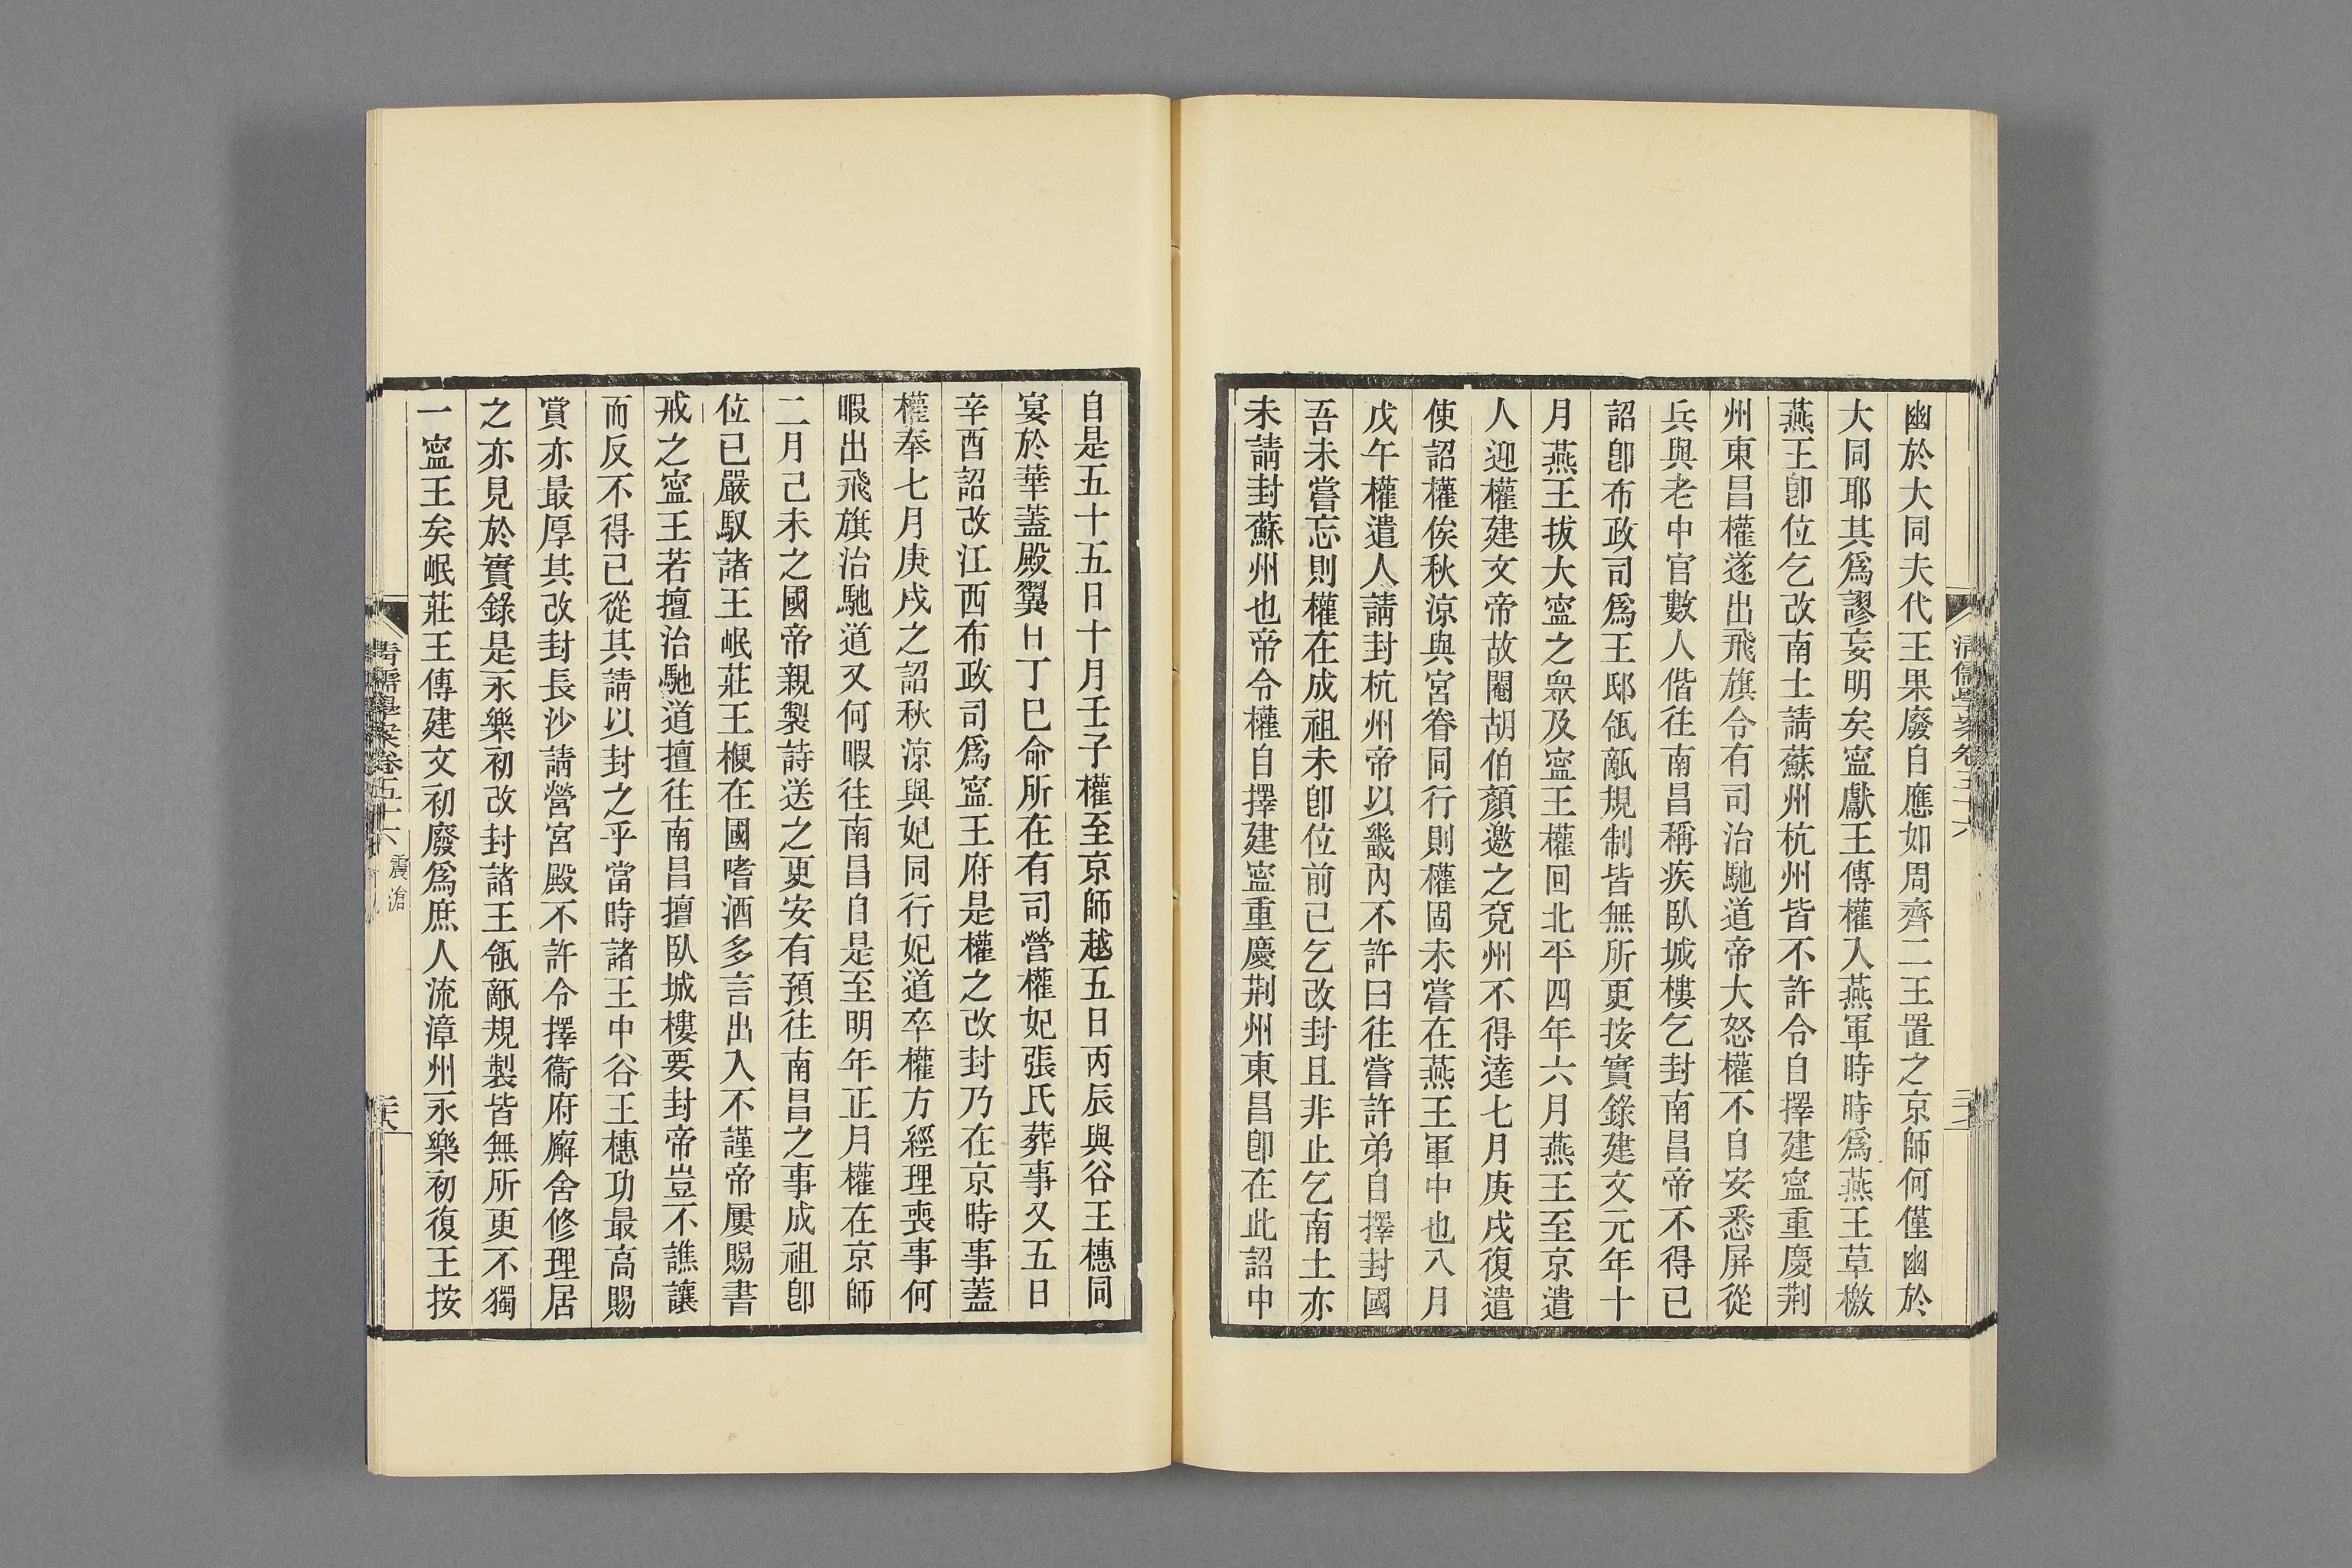 幽於大同夫代王果廢自應如周齊二王置之京師何僅幽於
大同耶其爲謬妄明矣寍獻王傳權入燕軍時時爲燕王草檄
燕王卽位乞改南土請蘇州杭州皆不許令自擇建寍重慶荆
州東昌權遂出飛旗令有司治馳道帝大怒權不自安悉屏從
兵與老中官數人偕往南昌稱疾臥城樓乞封南昌帝不得已
詔卽布政司爲王邸瓴甋規制皆無所更按實錄建文元年十
月燕王拔大寍之衆及寍王權回北平四年六月燕王至京遣
人迎權建文帝故閹胡伯顏邀之兗州不得達七月庚戌復遣
使詔權俟秋涼與宮眷同行則權固未嘗在燕王軍中也八月
戊午權遣人請封杭州帝以畿內不許曰往嘗許弟自擇封國
吾未嘗忘則權在成祖未卽位前已乞改封且非止乞南土亦
未請封蘇州也帝令權自擇建寍重慶荆州東昌卽在此詔中
自是五十五日十月壬子權至京師越五日丙辰與谷王橞同
宴於華蓋殿翼日丁巳命所在有司營權妃張氏葬事又五日
辛酉詔改江西布政司爲寍王府是權之改封乃在京時事蓋
權奉七月庚戌之詔秋涼與妃同行妃道卒權方經理喪事何
暇出飛旗治馳道又何暇往南昌自是至明年正月權在京師
二月己未之國帝親製詩送之更安有預往南昌之事成祖卽
位已嚴馭諸王岷莊王楩在國嗜酒多言出入不謹帝屢賜書
戒之寍王若擅治馳道擅往南昌擅臥城樓要封帝豈不譙讓
而反不得已從其請以封之乎當時諸王中谷王橞功最高賜
賞亦最厚其改封長沙請營宮殿不許令擇衞府廨舍修理居
之亦見於實錄是永樂初改封諸王瓴甋規製皆無所更不獨
一寍王矣岷莊王傳建文初廢爲庶人流漳州永樂初復王按
清儒學案卷五十六
震滄